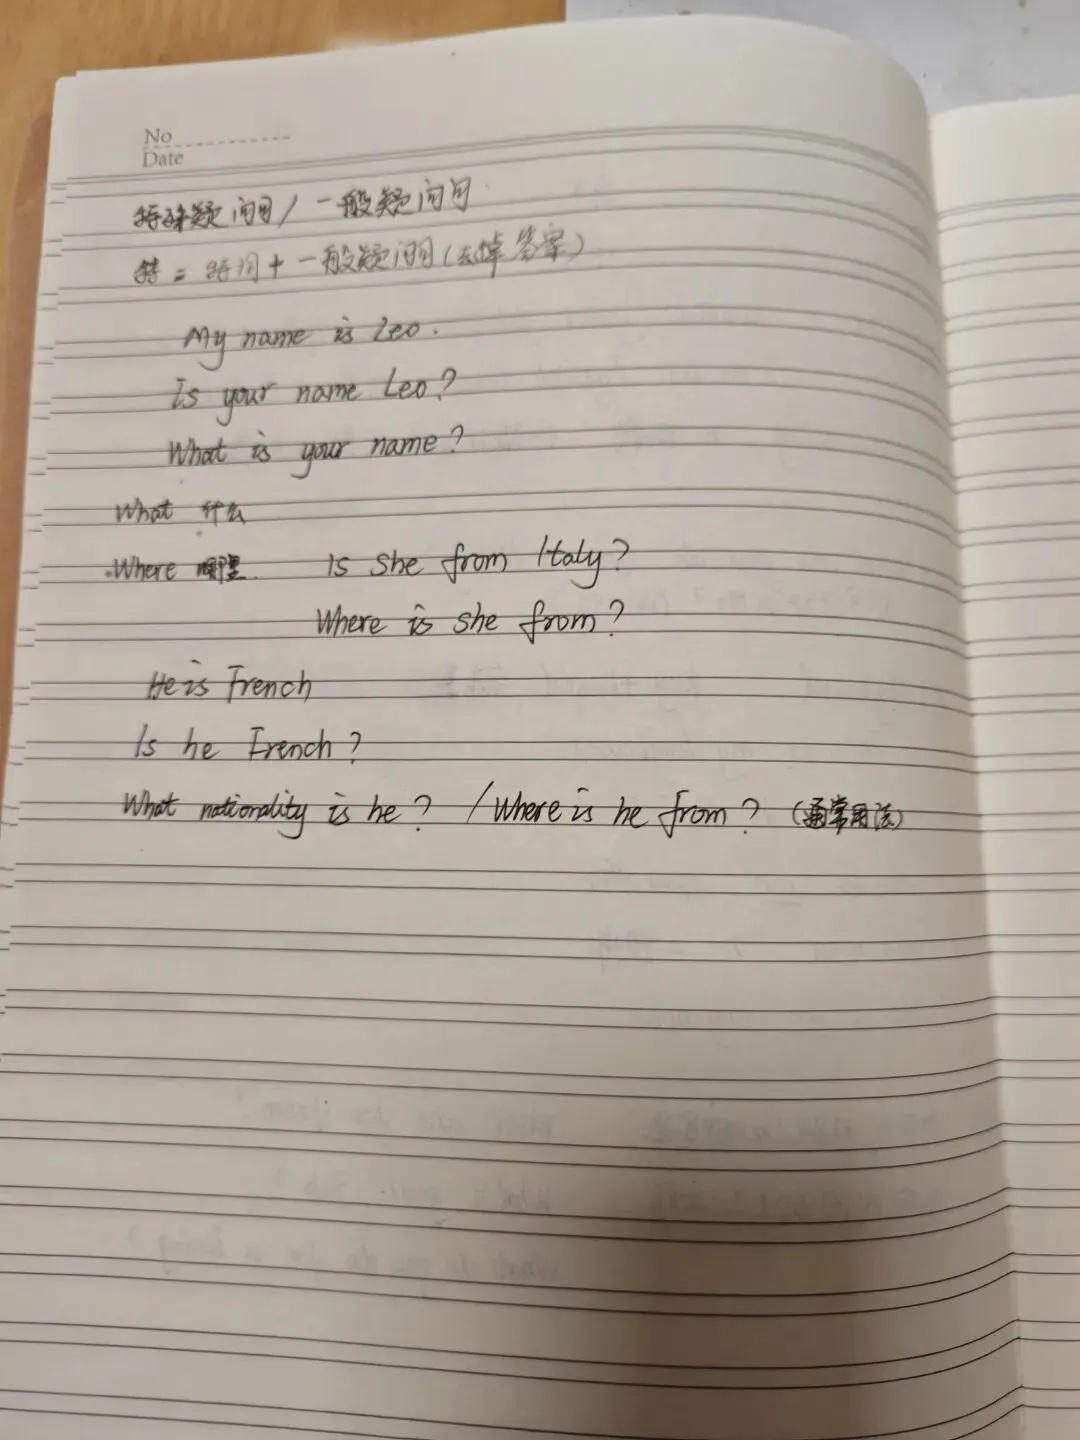 No
Date
特殊疑问句 / 一般疑问句
特 = 特词 + 一般疑问 (去掉答案)
My name is Leo.
Is your name Leo?
What is your name?
What 什么
Where 哪里 Is she from Italy?
Where is she from?
He is French
Is he French?
What nationality is he? / Where is he from? (通常用法)